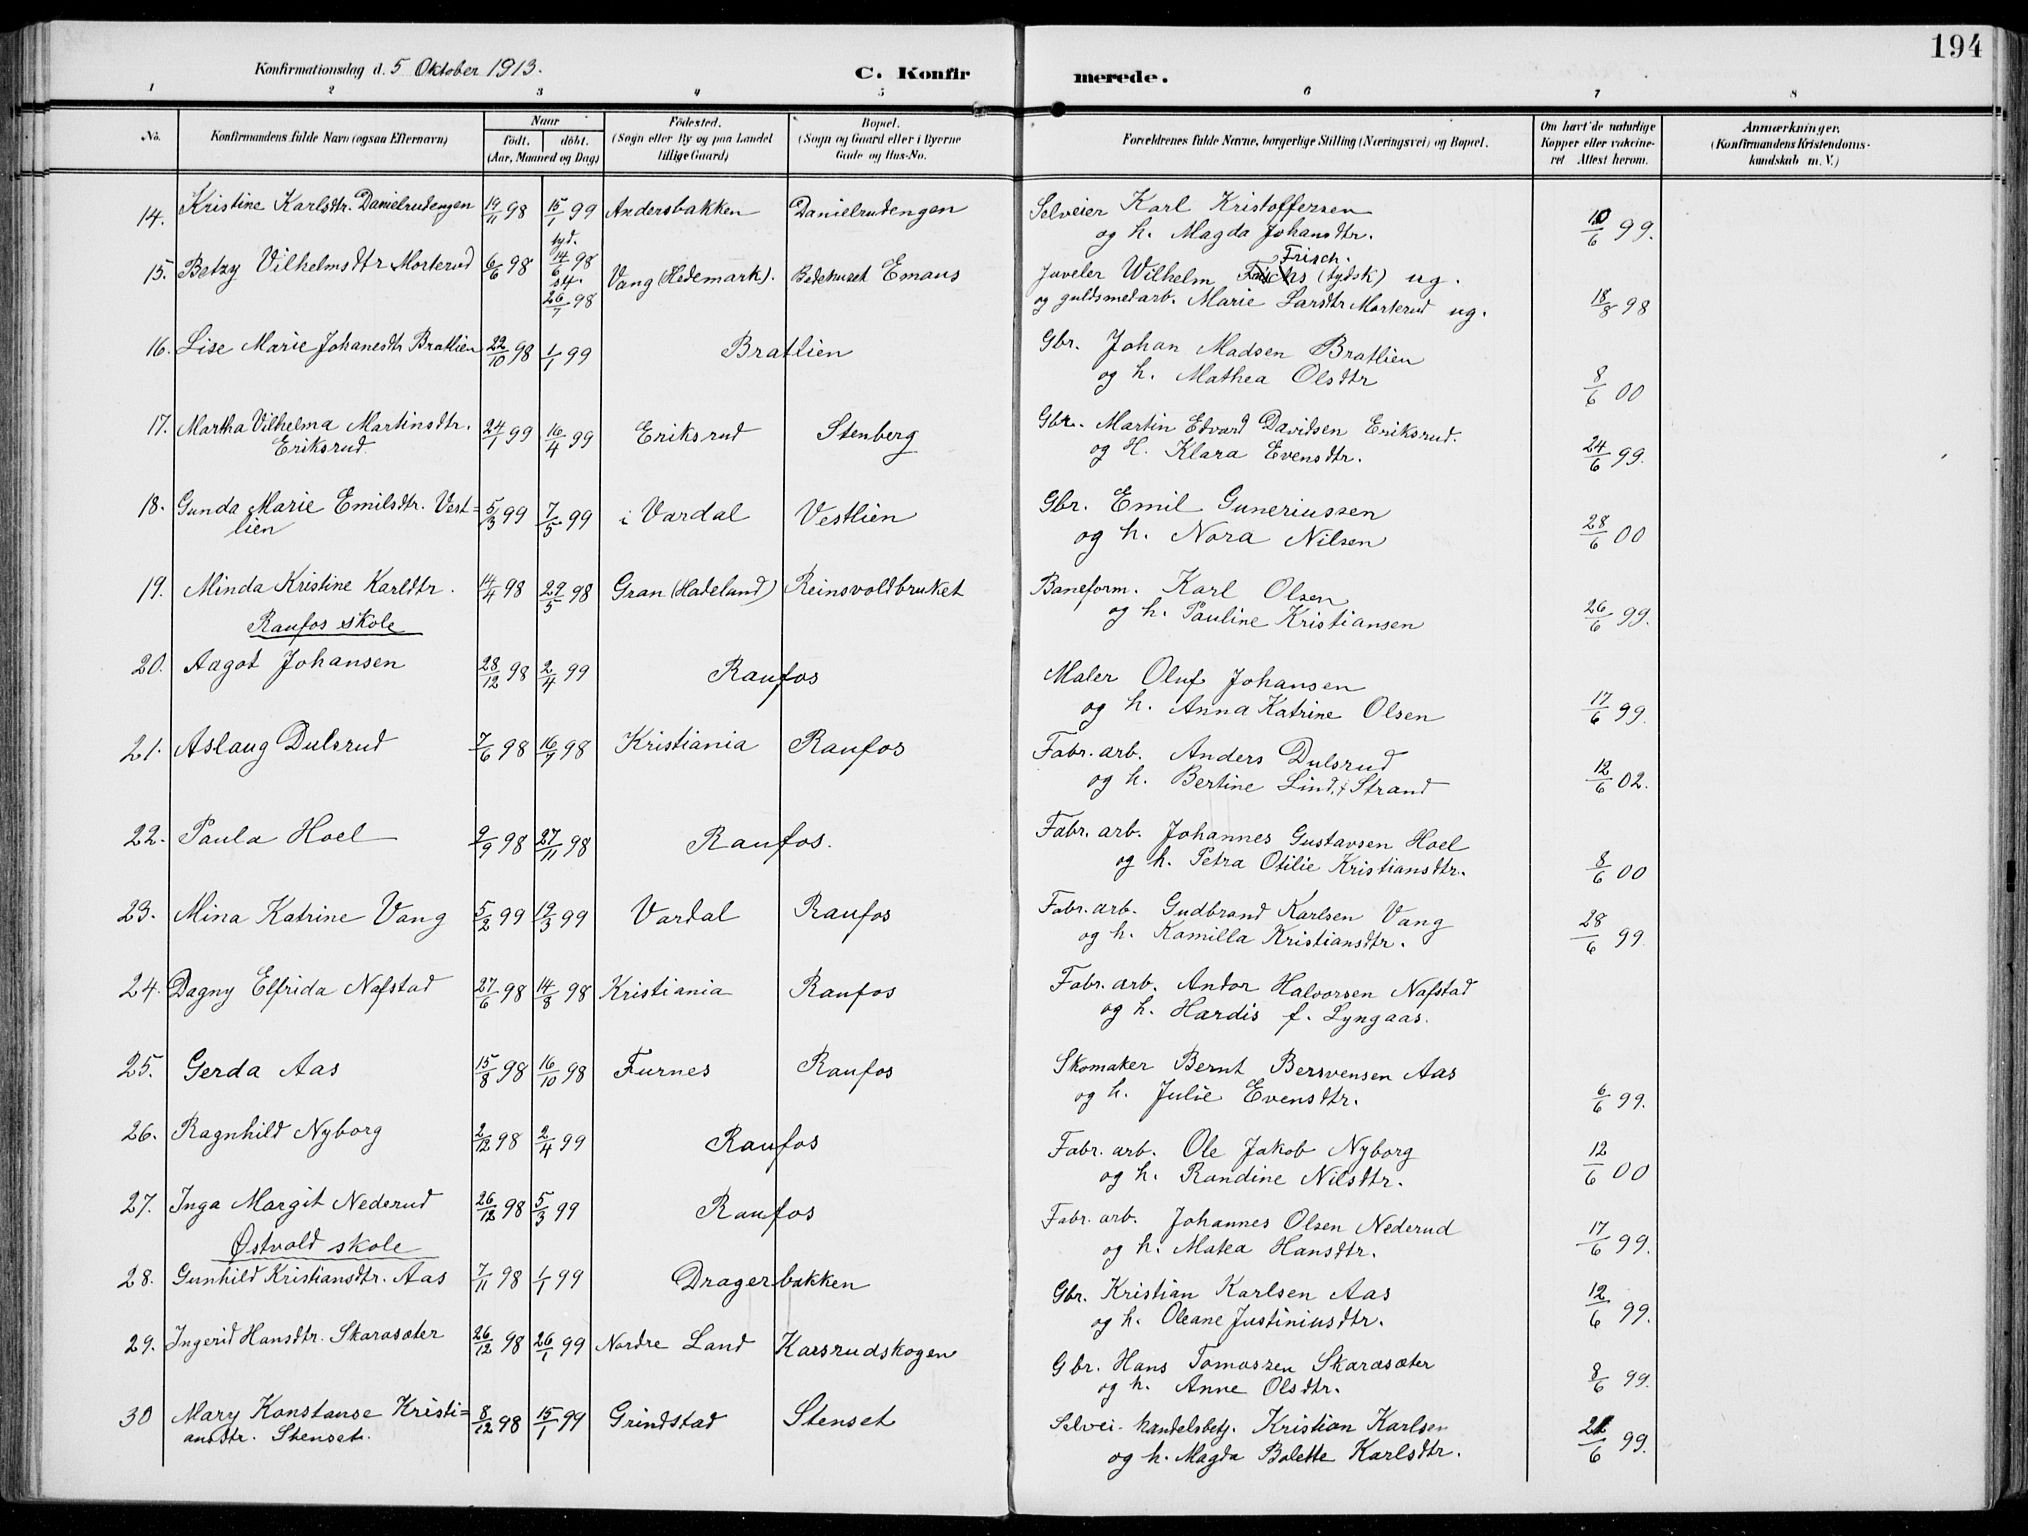 194
Konfirmationsdag d. 5 Oktober 1913.
C. Konfirmerede.
1 2 3 4 5 6 7 8
No. | Konfirmandens fulde Navn (ogsaa Efternavn) | Naar født. døbt. (Aar, Maaned og Dag) | Fødested. (Sogn eller By og paa Landet tillige Gaard) | Bopæl. (Sogn og Gaard eller i Byerne Gade og Hus-No. | Forældrenes fulde Navne, borgerlige Stilling (Næringsvei) og Bopæl. | Om havt de naturlige Kopper eller vakcineret Attest herom. | Anmærkninger. (Konfirmandens Kristendomskundskab m. V.)
14. Kristine Karlsdtr. Danielrudengen 19/11 98 15/1 99 Andersbakken Danielrudengen Selveier Karl Kristoffersen 10/6 99.
og h. Magda Johansdtr.
15. Betzy Vilhelmsdtr Morterud 6/6 98 tyd. 14/6 98 st. 26/7 98 Vang (Hedemark). Bedehuset Emaus Juveler Wilhelm Frisch. (tydsk) ug. 18/8 98
og guldsmedarb. Marie Larsdtr Morterud ug.
16. Lise Marie Johanesdtr Bratlien 22/10 98 1/1 99 Bratlien Gbr. Johan Madsen Bratlien 8/6 00
og h. Mathea Olsdtr
17. Martha Vilhelma Martinsdtr. 24/1 99 16/4 99 Eriksrud Stenberg Gbr. Martin Edvard Davidsen Eriksrud. 24/6 99.
Eriksrud. og H. Klara Evensdtr.
18. Gunda Marie Emilsdtr. Vest= 5/3 99 7/5 99 i Vardal Vestlien Gbr. Emil Guneriussen 28/6 00
lien og h. Nora Nilsen
19. Minda Kristine Karldtr. 14/4 98 29/5 98 Gran (Hadeland) Reinsvoldbruket Baneform. Karl Olsen 26/6 99.
og h. Pauline Kristiansen
Raufos skole
20. Aagot Johansen 28/12 98 2/4 99 Raufos Maler Oluf Johansen 17/6 99.
og h. Anna Katrine Olsen
21. Aslaug Dulsrud 7/6 98 16/9 98 Kristiania Raufos Fabr. arb. Anders Dulsrud 12/6 02.
og h. Bertine Lind. f Strand
22. Paula Hoel 9/9 98 27/11 98 Raufos. Fabr. arb. Johannes Gustavsen Hoel 8/6 00
og h. Petra Otilie Kristiansdtr.
23. Mina Katrine Vang 5/2 99 19/3 99 Vardal Raufos Fabr. arb. Gudbrand Karlsen Vang 28/6 99.
og h. Kamilla Kristiansdtr.
24. Dagny Elfrida Nafstad 27/6 98 14/8 98 Kristiania Raufos Fabr. arb. Andor Halvorsen Nafstad
og h. Hardis f. Lyngaas.
25. Gerda Aas 15/8 98 16/10 98 Furnes Raufos Skomaker Bernt Bersvensen Aas 6/6 99.
og h. Julie Evensdtr.
26. Ragnhild Nyborg 2/12 98 2/4 99 Raufos Fabr. arb. Ole Jakob Nyborg 12/6 00
og h. Randine Nilsdtr.
27. Inga Margit Nederud 26/12 98 5/3 99 Raufos Fabr. arb. Johannes Olsen Nederud 17/6 99.
og h. Matea Hansdtr.
Østvold skole
28. Gunhild Kristiansdtr. Aas 7/11 98 1/1 99 Dragerbakken Gbr. Kristian Karlsen Aas 12/6 99.
og h. Oleane Justiniusdtr.
29. Ingerid Hansdtr. Skarasæter 26/12 98 26/1 99 Nordre Land Karsrudskogen Gbr. Hans Tomassen Skarasæter 8/6 99.
og h. Anne Olsdtr.
30 Mary Konstanse Kristi= 8/12 98 15/1 99 Grindstad Stenset Selvei. handelsbetj. Kristian Karlsen /6 99.
ansdtr. Stenset. og h. Magda Bolette Karlsdtr.